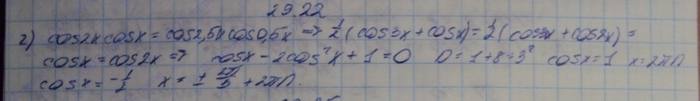 29.22
2) cos2x cosx = cos2,5x cos0,5x => 1/2 (cos3x + cosx) = 1/2 (cos3x + cos2x) =
cosx = cos2x => cosx - 2cos²x + 1 = 0 D = 1 + 8 = 3² cosx = 1 x = 2πn
cosx = -1/2 x = ± 2π/3 + 2πn.